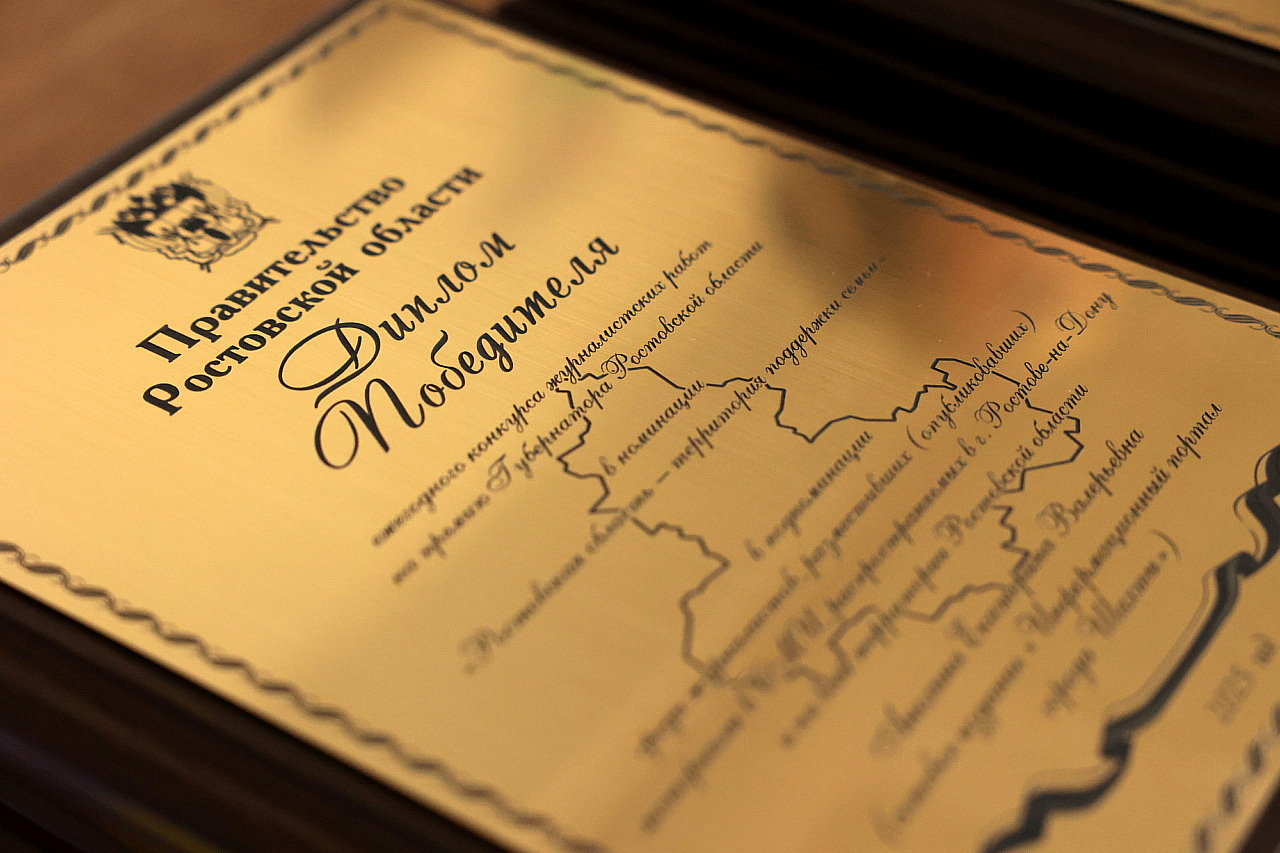 Правительство
Ростовской области
Диплом
Победителя
ежегодного конкурса журналистских работ
на премию Губернатора Ростовской области
в номинации
Ростовская область – территория поддержки семьи
в подноминации
разместивших (опубликовавших)
в СМИ, распространяемых в г. Ростове-на-Дону
и на территории Ростовской области
Екатерина Валерьевна
(сетевое издание «Информационный портал
города Шахты»)